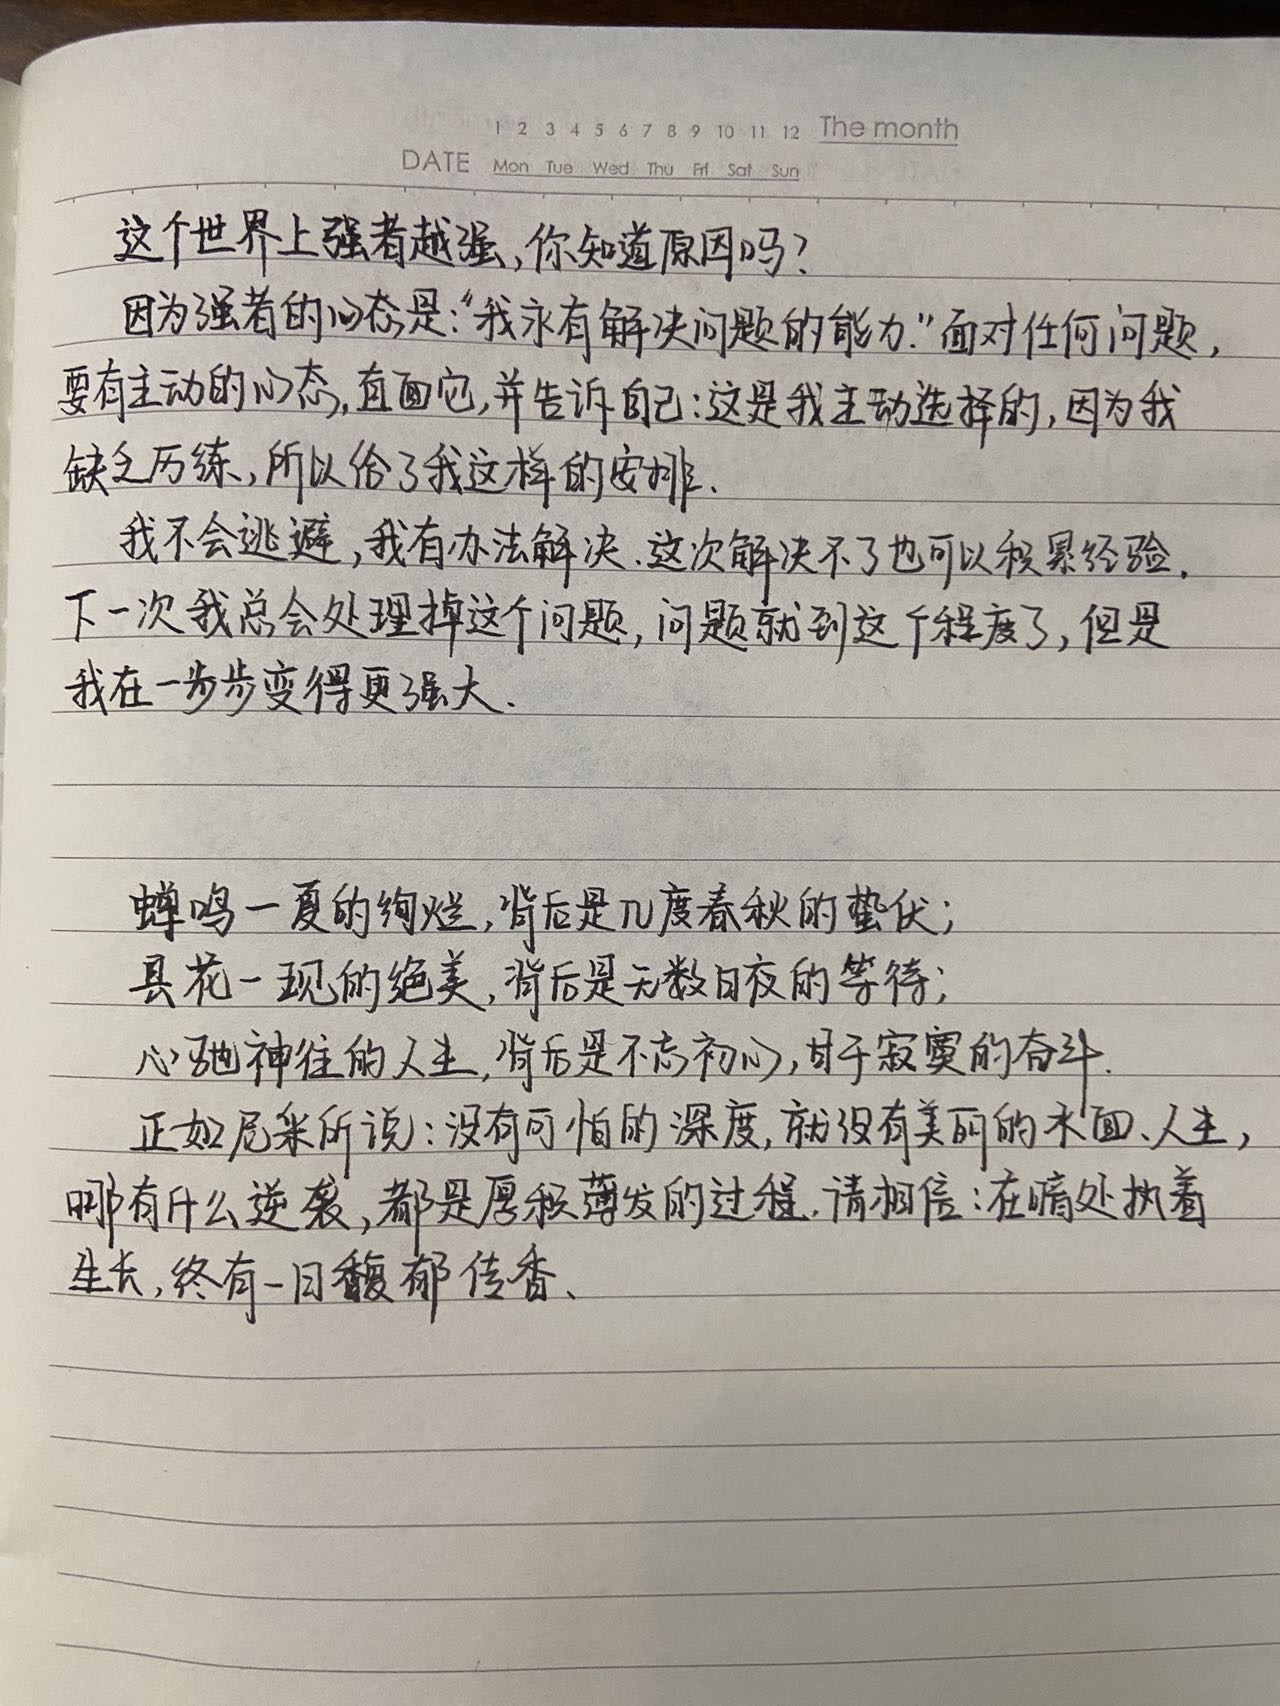 1 2 3 4 5 6 7 8 9 10 11 12 The month
DATE Mon Tue Wed Thu Fri Sat Sun
这个世界上强者越强,你知道原因吗?
因为强者的心态是:“我永有解决问题的能力.”面对任何问题,
要有主动的心态,直面它,并告诉自己:这是我主动选择的,因为我
缺乏历练,所以给了我这样的安排.
我不会逃避,我有办法解决.这次解决不了也可以积累经验.
下一次我总会处理掉这个问题,问题就到这个程度了,但是
我在一步步变得更强大.
蝉鸣一夏的绚烂,背后是几度春秋的蛰伏;
昙花一现的绝美,背后是无数日夜的等待;
心驰神往的人生,背后是不忘初心,甘于寂寞的奋斗.
正如尼采所说:没有可怕的深度,就没有美丽的水面、人生,
哪有什么逆袭,都是厚积薄发的过程.请相信:在暗处执着
生长,终有一日馥郁传香、